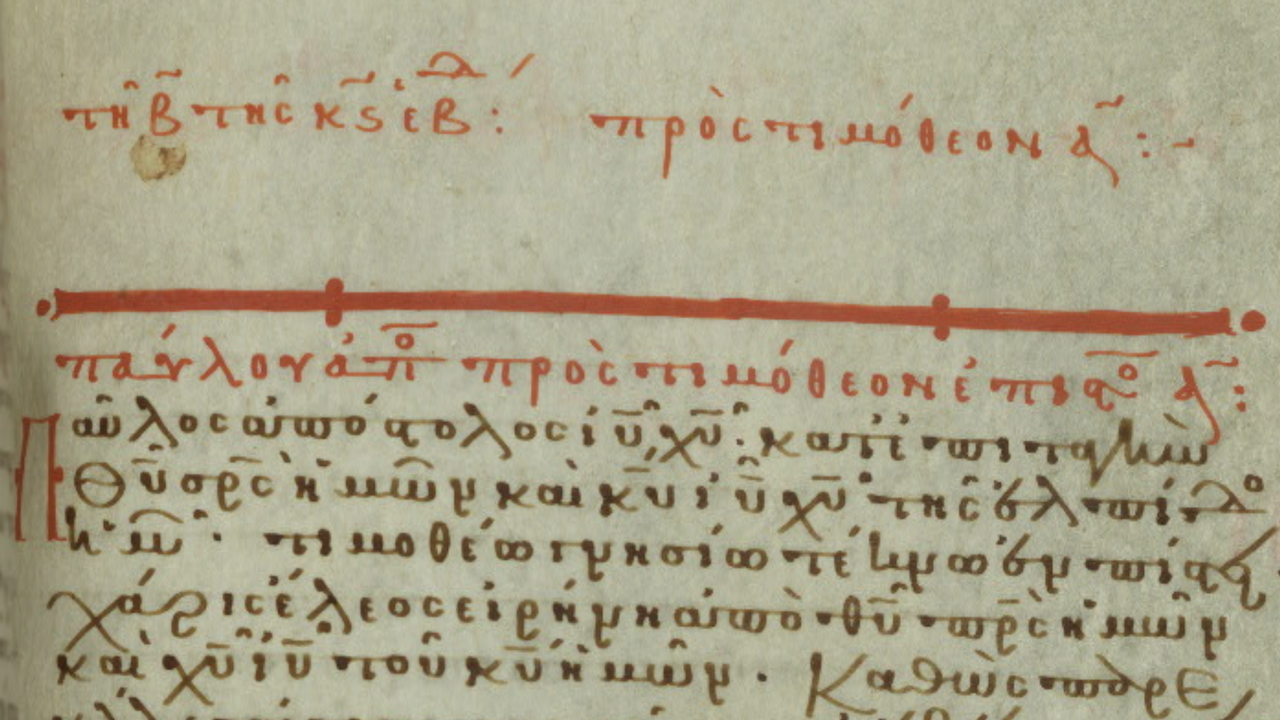 τῆ β̃ τῆς κς̃ ἑβδ : πρὸς τιμόθεον ᾱ : -
παύλου ἀπο πρὸς τιμόθεον ἐπιστο ᾱ :
Παῦλος ἀπόστολος ἰῦ χῦ· κατ ἐπιταγὴν
θῦ σρ̅ς ἡμῶν καὶ κῦ ἰῦ χῦ τῆς ἐλπίδο
ἡμ · τιμοθέω γνησίω τέκνω ἐν πίστ
χάρις ἔλεος εἰρήνη ἀπὸ θῦ πρ̅ς ἡμῶν
καὶ χῦ ἰῦ τοῦ κῦ ἡμῶν · Καθὼς παρε